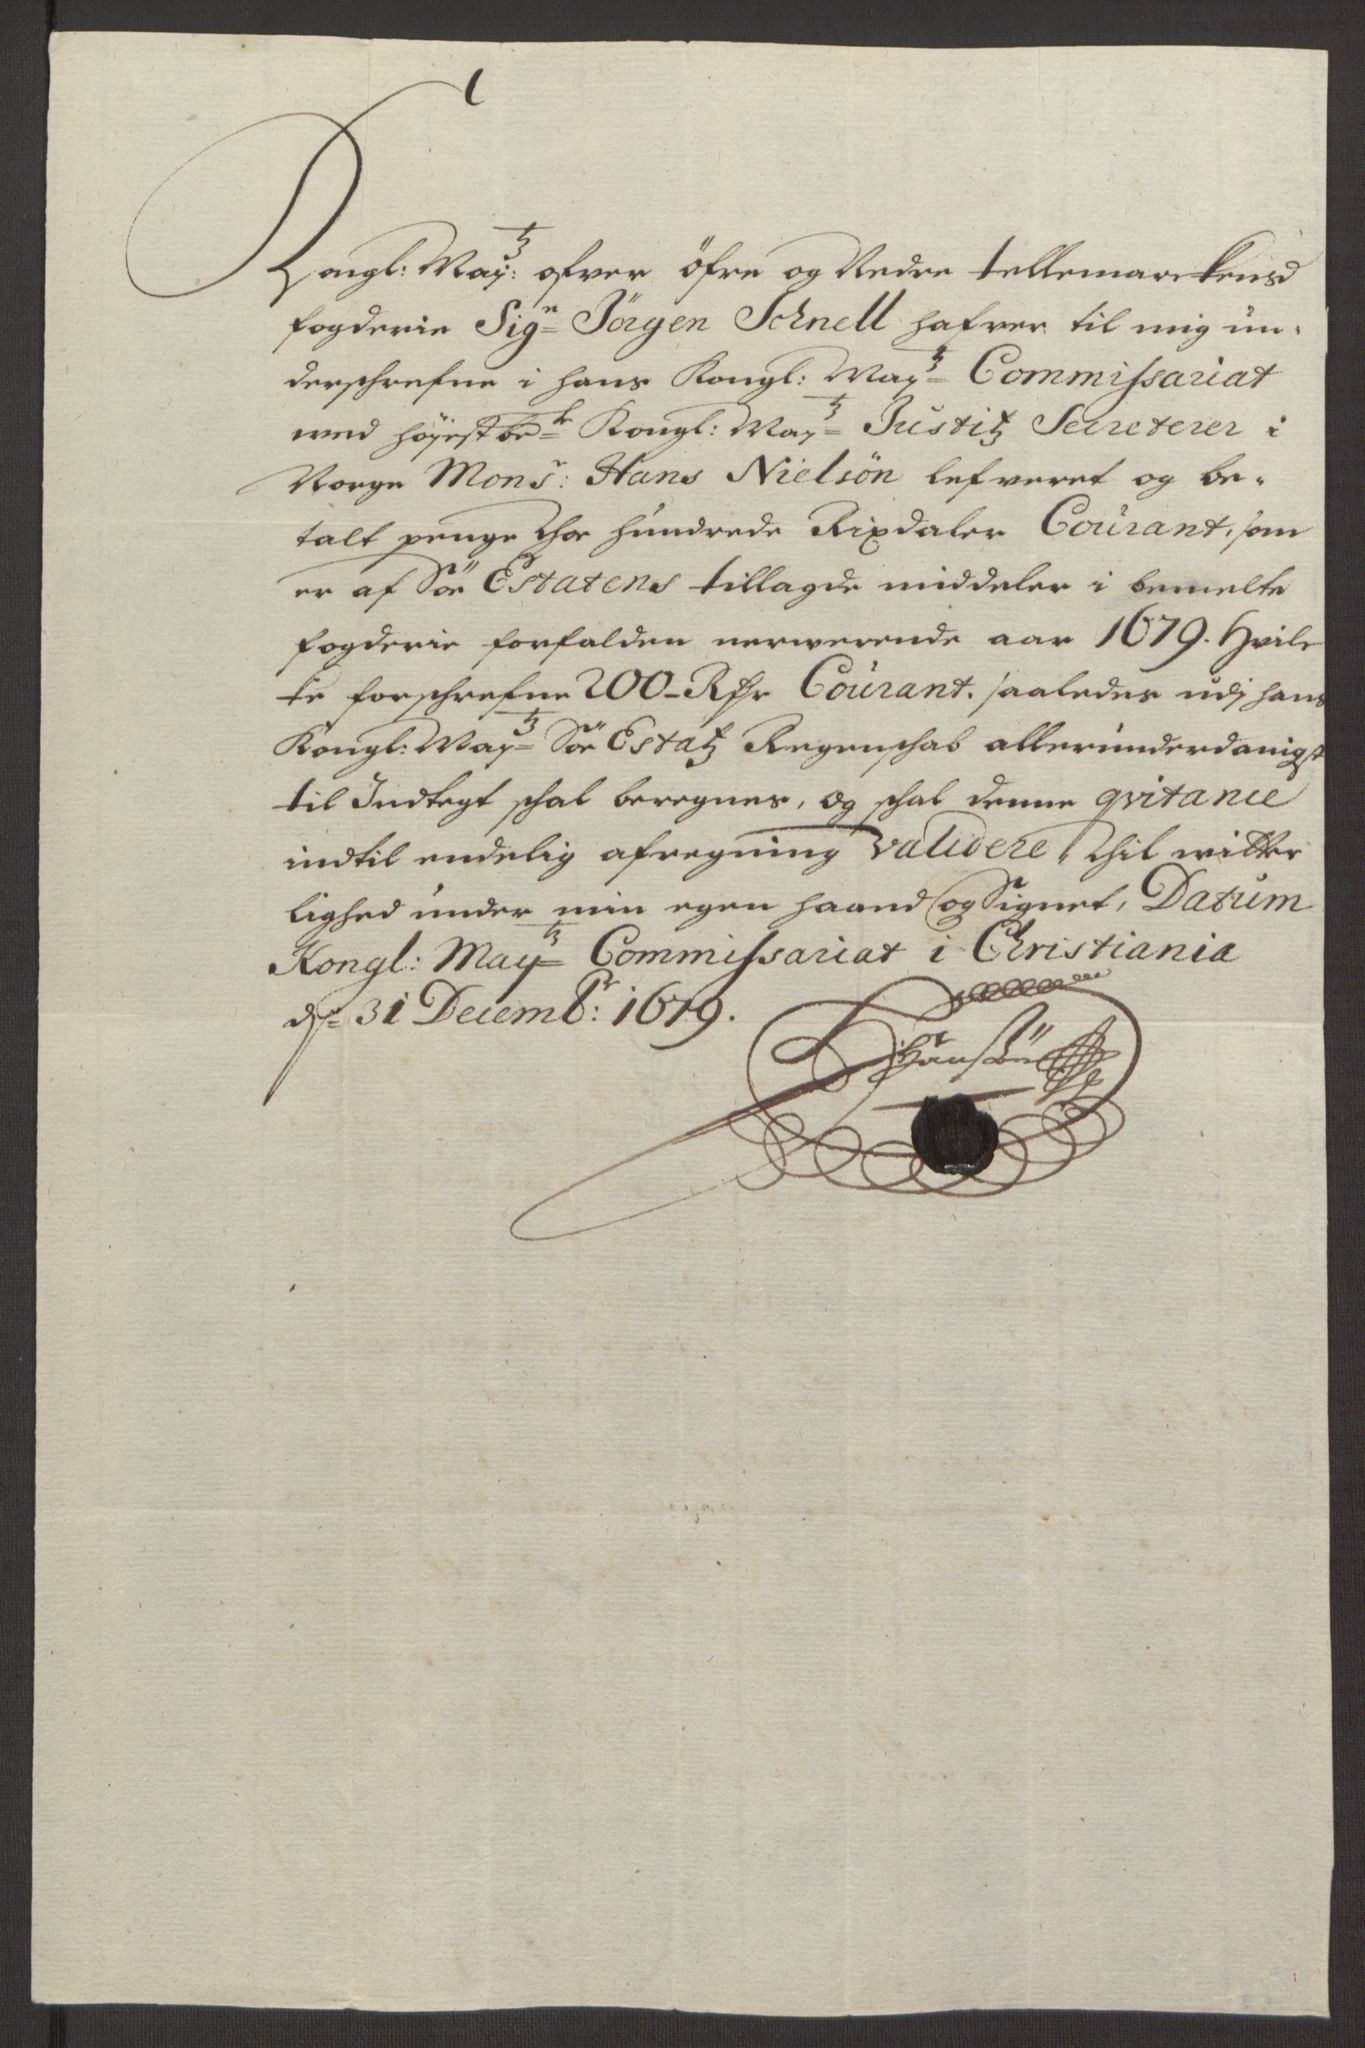 Kongl: May:tz ofver öfre og Nedre tellemarckens
fogderie Sig:r Jörgen Schnell hafver til mig ün-
derschrefne i hans Kongl: May:tz Commissariat
wed höyestbe:te Kongl: May:tz Justitz Secreterer i
Norge Mons:r Hans Nielsön lefveret og be-
talt penge Thoe hundrede Rixdaler Courant, som
er af Söe Estatens tillagde middeler i bemelte
fogderie forfalden nerwerende aar 1679. Hvilc
ke forschrefne 200 - Rdr Courant. saaledes udj hans
Kongl: May:tz Söe Estatz Regenschab allerunderdanigst
til Indtegt schal beregnes, og schal denne qvitance
indtil endelig afregning validere, Thil witter
lighed under min egen haand og Signet, Datum
Kongl: May:tz Commissariat i Christiania
dn 31 Decemb:r 1679.